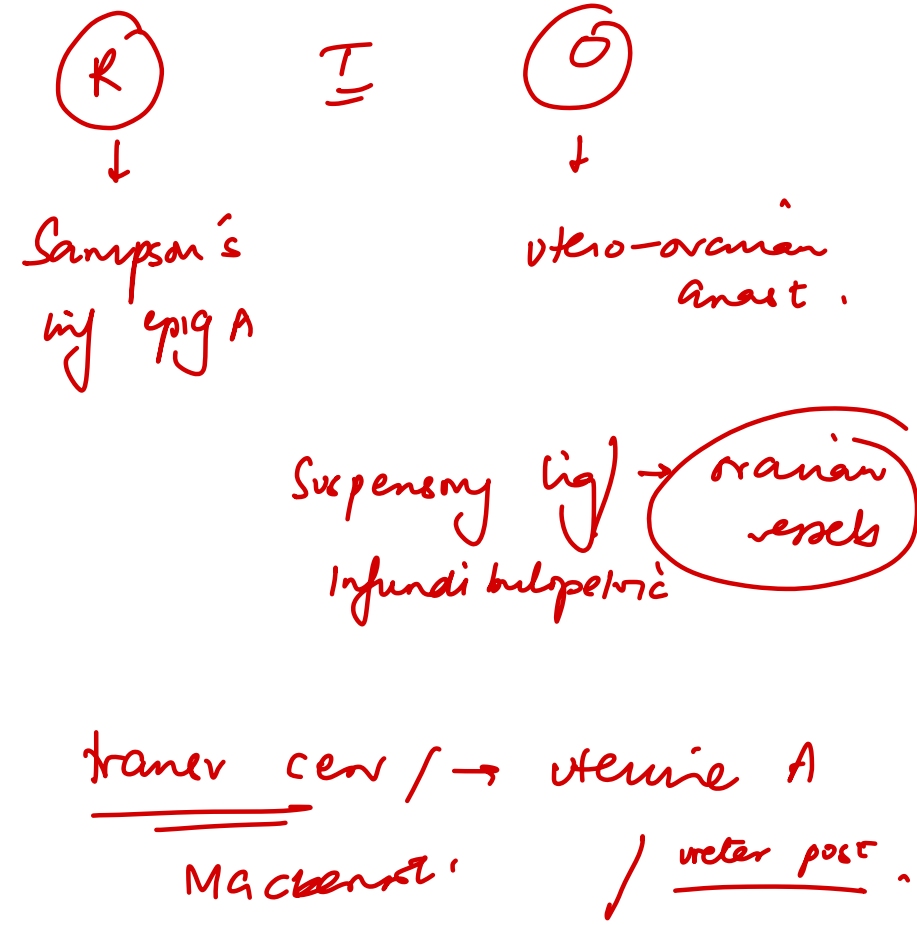 R T O
Sampson's
inf epig A
utero-ovarian
anast.
Suspensory lig / → ovarian
vessels
Infundibulopelvic
transv cerv / → uterine A
Mackenrot.
/ ureter post.